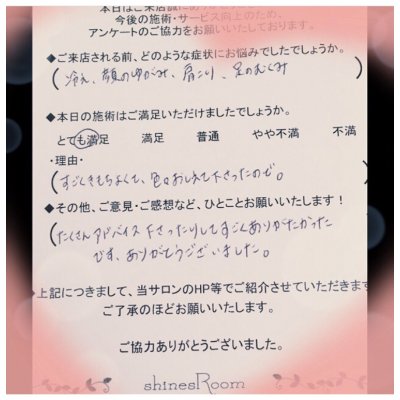 本日はご来店誠にありがとうございます。
今後の施術・サービス向上のため、
アンケートのご協力をお願いいたしております。
◆ご来店される前、どのような症状にお悩みでしたでしょうか。
(冷え、顔のゆがみ、肩こり、足のむくみ
◆本日の施術はご満足いただけましたでしょうか。
とても満足 満足 普通 やや不満 不満
・理由・
(すごくきもちよくて、色々おしえて下さったので。
◆その他、ご意見・ご感想など、ひとことお願いいたします!
(たくさんアドバイス下さったりしてすごくありがたかった
です、ありがとうございました。
◆上記につきまして、当サロンのHP等でご紹介させていただきます
ご了承のほどお願いいたします。
ご協力ありがとうございました。
shinesRoom